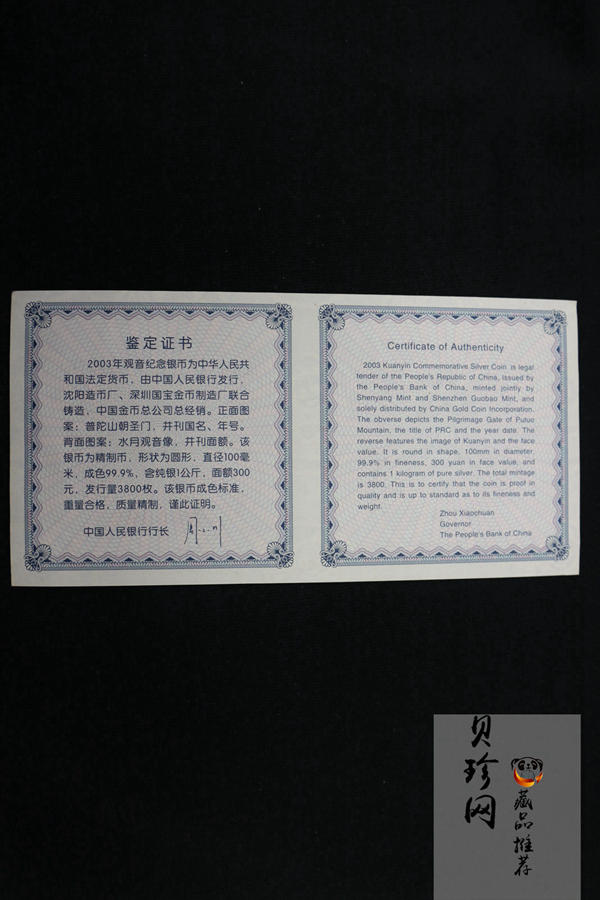 鉴定证书
2003年观音纪念银币为中华人民共
和国法定货币，由中国人民银行发行，
沈阳造币厂、深圳国宝金币制造厂联合
铸造，中国金币总公司总经销。正面图
案：普陀山朝圣门，并刊国名、年号。
背面图案：水月观音像，并刊面额。该
银币为精制币，形状为圆形，直径100毫
米，成色99.9%，含纯银1公斤，面额300
元，发行量3800枚。该银币成色标准，
重量合格，质量精制，谨此证明。
中国人民银行行长
Certificate of Authenticity
2003 Kuanyin Commemorative Silver Coin is legal
tender of the People's Republic of China, issued by
the People's Bank of China, minted jointly by
Shenyang Mint and Shenzhen Guobao Mint, and
solely distributed by China Gold Coin Incorporation.
The obverse depicts the Pilgrimage Gate of Putuo
Mountain, the title of PRC and the year date. The
reverse features the image of Kuanyin and the face
value. It is round in shape, 100mm in diameter,
99.9% in fineness, 300 yuan in face value, and
contains 1 kilogram of pure silver. The total mintage
is 3800. This is to certify that the coin is proof in
quality and is up to standard as to its fineness and
weight.
Zhou Xiaochuan
Governor
The People's Bank of China
贝珍网
藏品推荐